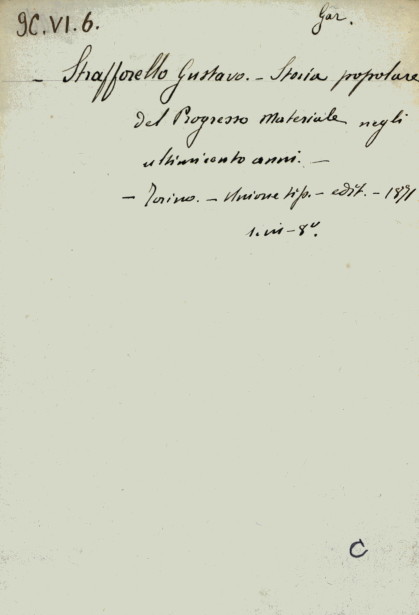 9C.VI.6.
Gar.
– Strafforello Gustavo. – Storia popolare
del Progresso Materiale negli
ultimi cento anni. –
– Torino. – Unione tip. – edit. – 1871
8º.
C